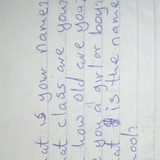 at is your name?
at class are you?
how old are you?
e you a girl or boy
at is the name
ool?